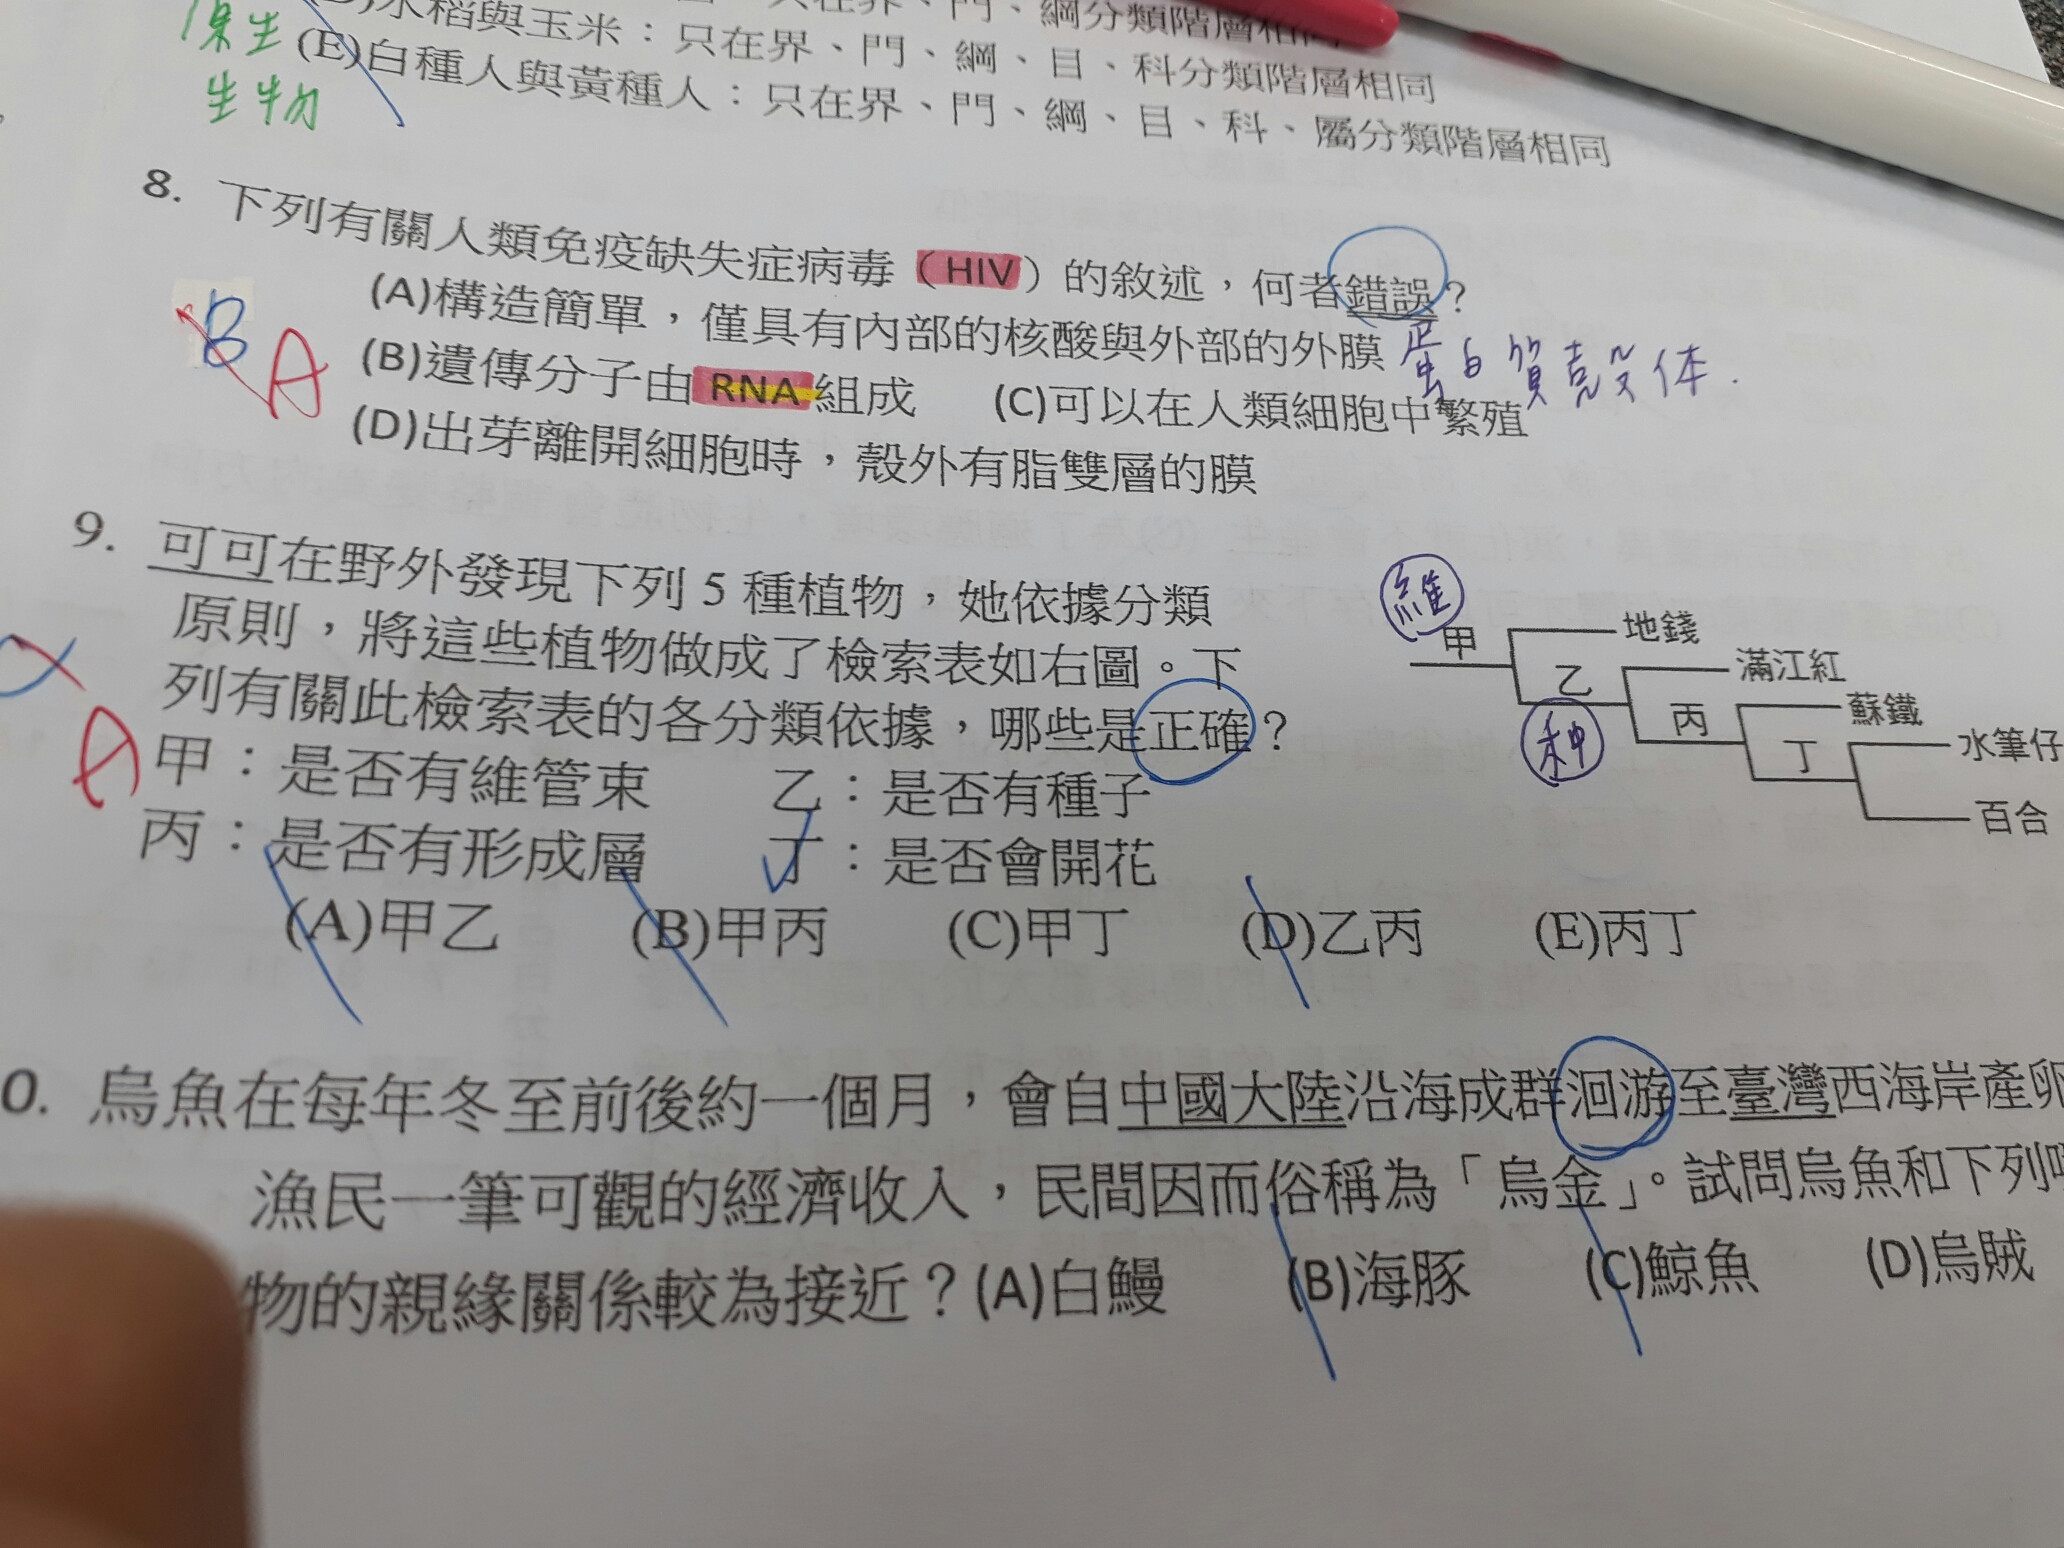 水稻與玉米：只在界、門、綱、目、科分類階層相同
原生
生物
(E)白種人與黃種人：只在界、門、綱、目、科、屬分類階層相同
8. 下列有關人類免疫缺失症病毒（HIV）的敘述，何者錯誤？
(A)構造簡單，僅具有內部的核酸與外部的外膜 蛋白質殼体.
B A
(B)遺傳分子由RNA組成 (C)可以在人類細胞中繁殖
(D)出芽離開細胞時，殼外有脂雙層的膜
9. 可可在野外發現下列5種植物，她依據分類
原則，將這些植物做成了檢索表如右圖。下
列有關此檢索表的各分類依據，哪些是正確？
A
甲：是否有維管束 乙：是否有種子
丙：是否有形成層 丁：是否會開花
維
甲 地錢
乙 滿江紅
种 丙 蘇鐵
丁 水筆仔
百合
(A)甲乙 (B)甲丙 (C)甲丁 (D)乙丙 (E)丙丁
0. 烏魚在每年冬至前後約一個月，會自中國大陸沿海成群洄游至臺灣西海岸產卵
漁民一筆可觀的經濟收入，民間因而俗稱為「烏金」。試問烏魚和下列
物的親緣關係較為接近？(A)白鰻 (B)海豚 (C)鯨魚 (D)烏賊